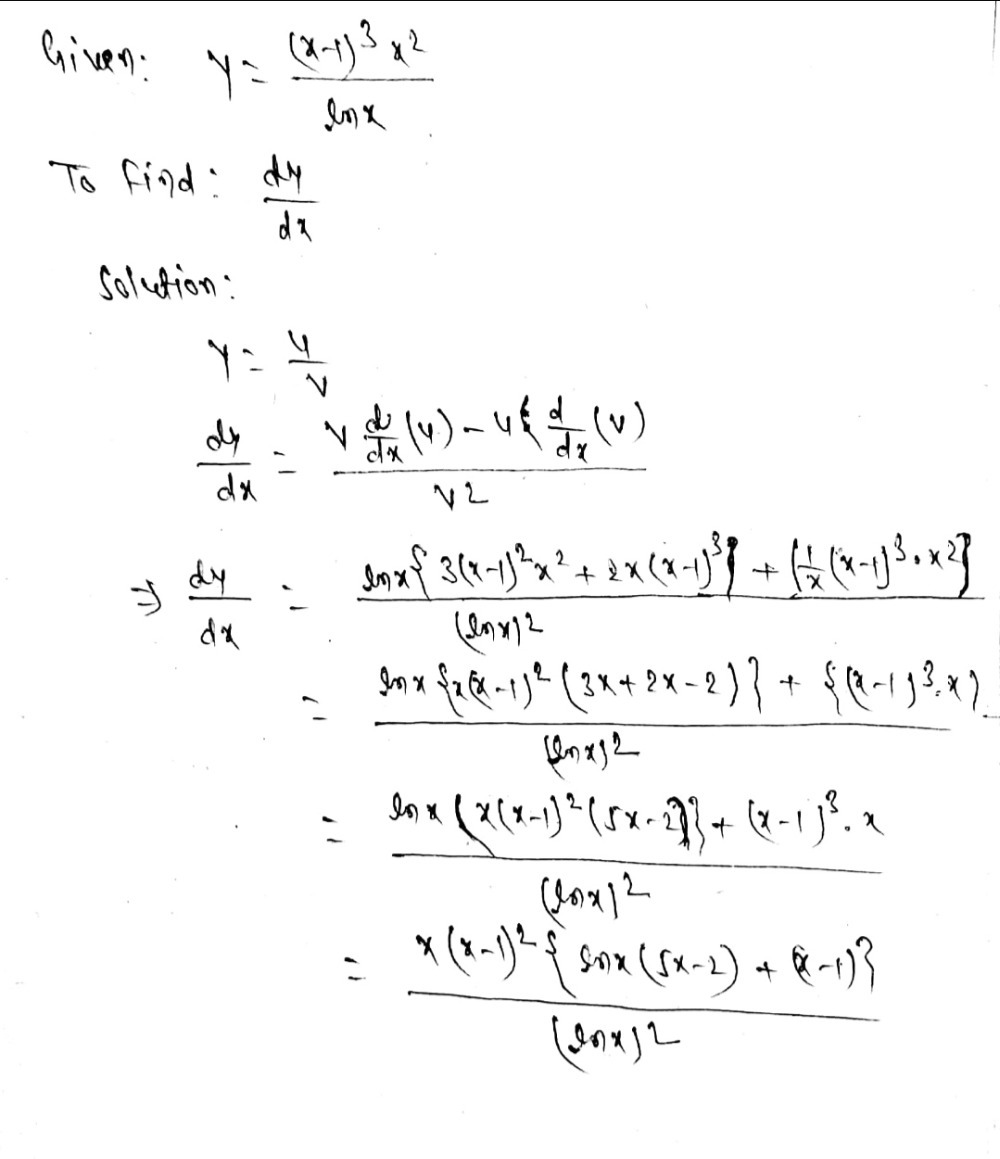 Given: y = (x-1)³ x² / ln x
To find: dy/dx
Solution:
y = u/v
dy/dx = v d/dx (u) - u { d/dx (v) / v2
⇒ dy/dx = ln x { 3(x-1)² x² + 2x (x-1)³ } + { 1/x (x-1)³ · x² } / (ln x)2
= ln x { x(x-1)² (3x + 2x - 2) } + { (x-1)³ · x } / (ln x)2
= ln x { x(x-1)² (5x-2) } + (x-1)³ · x / (ln x)2
= x (x-1)² { ln x (5x-2) + (x-1) } / (ln x)2